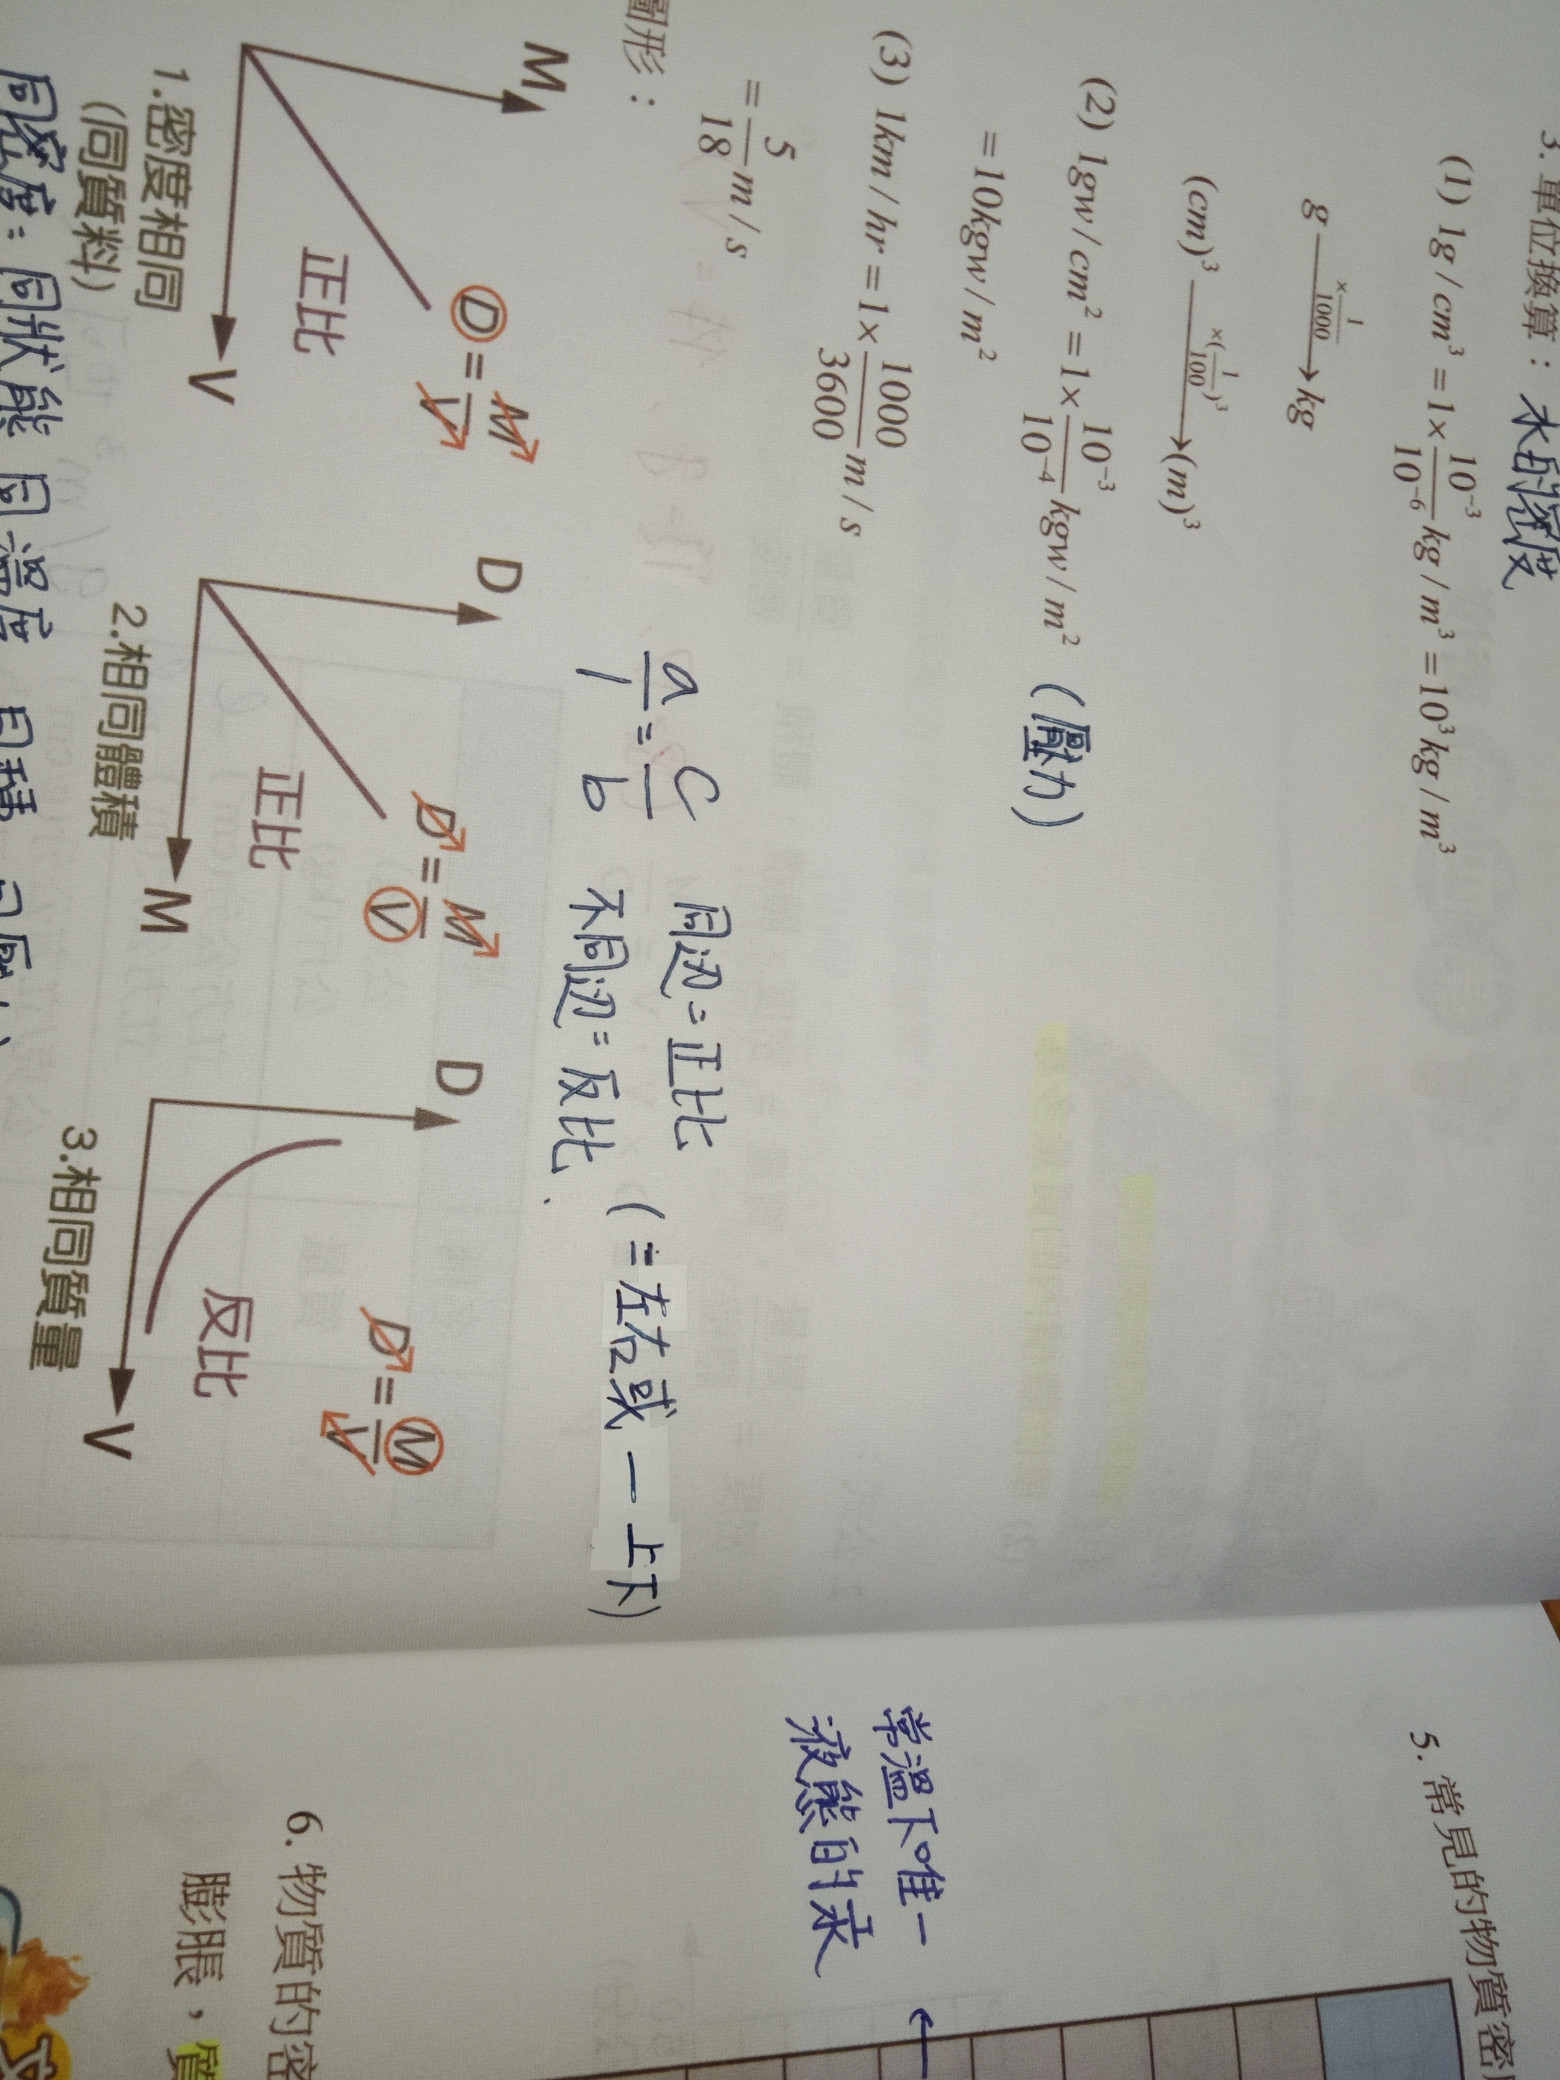 3. 單位換算：水的密度
(1) 1g/cm³ = 1×10⁻³/10⁻⁶ kg/m³ = 10³kg/m³
g ×1/1000→ kg
(cm)³ ×(1/100)³→ (m)³
(2) 1gw/cm² = 1×10⁻³/10⁻⁴ kgw/m² (壓力)
= 10kgw/m²
(3) 1km/hr = 1×1000/3600 m/s
= 5/18 m/s
圖形：
a/1 = c/b 同边=正比 (=左右或一上下)
不同边=反比.
M
D = M/V
正比
V
1.密度相同
(同質料)
D
D = M/V
正比
M
2.相同體積
D
D = M/V
反比
V
3.相同質量
同密度：同狀態 同溫度
5. 常見的物質密
常溫下唯一
液態的汞
←
6. 物質的密
膨脹，質